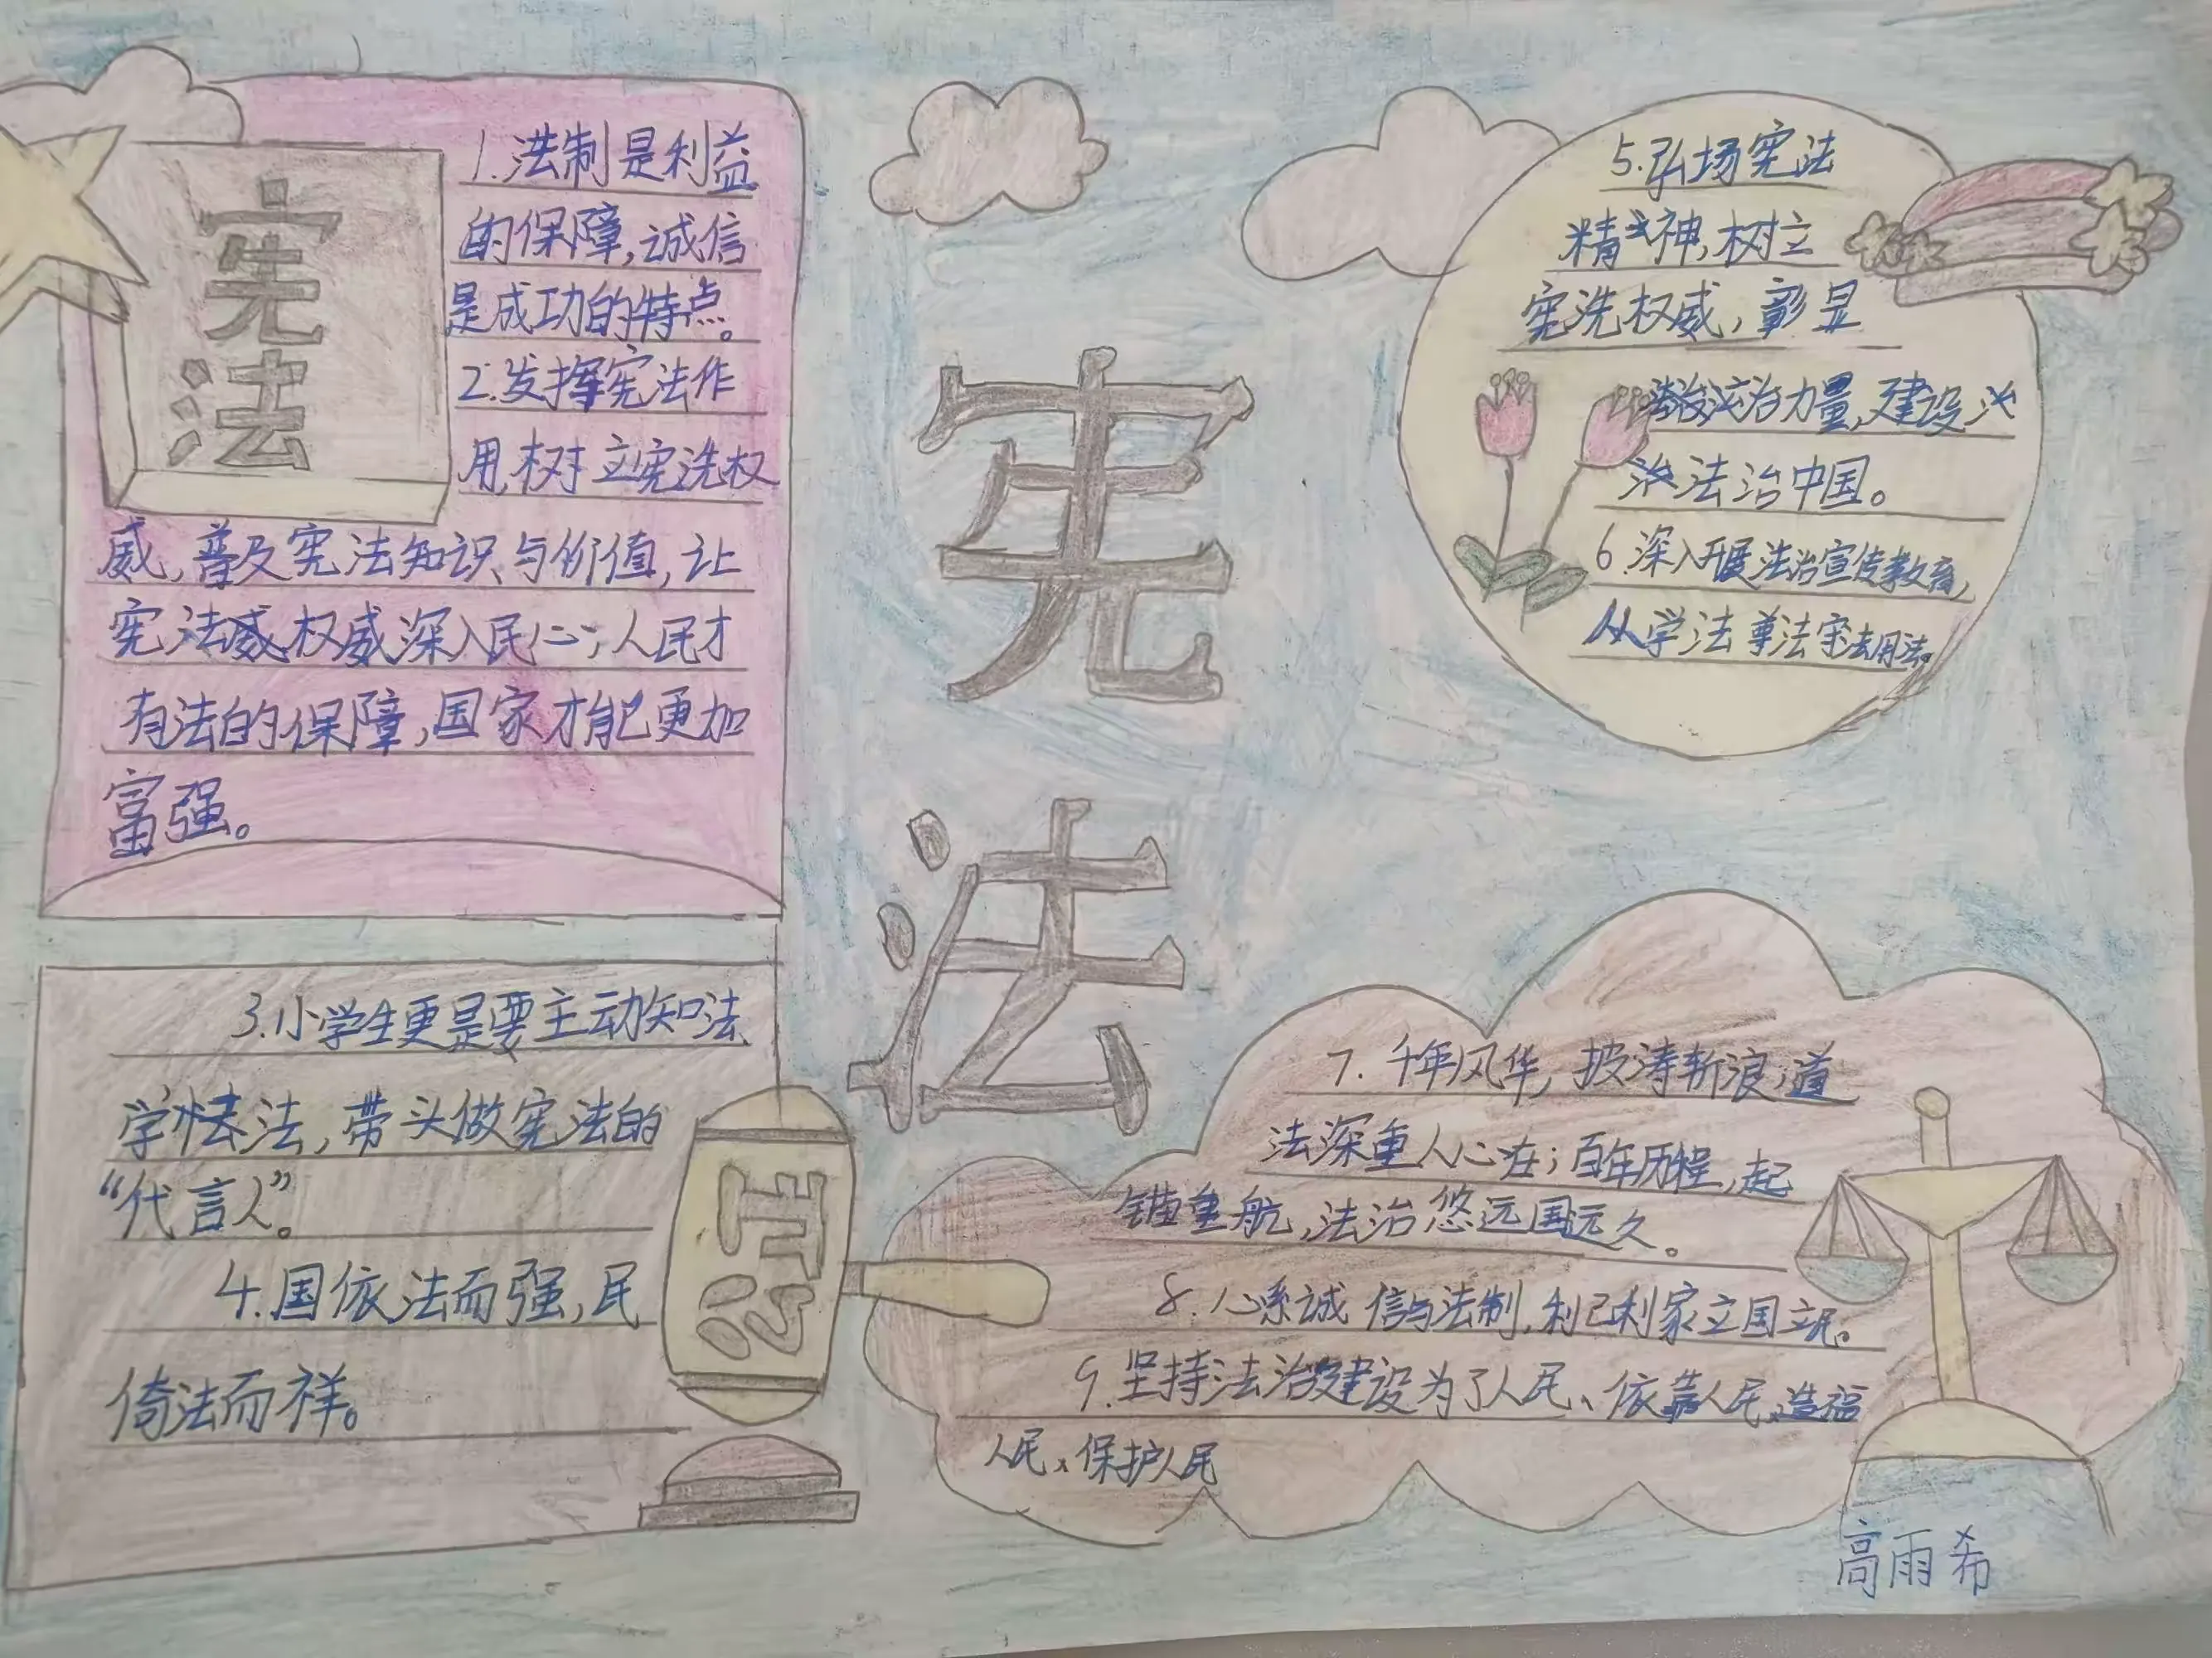 宪
法
1.法制是利益
的保障,诚信
是成功的特点。
2.发挥宪法作
用,树立宪洗权
威,普及宪法知识与价值,让
宪法权威深入民心;人民才
有法的保障,国家才能更加
富强。
3.小学生更是要主动知法
学法,带头做宪法的
“代言人”。
4.国依法而强,民
倚法而祥。
法
宪
法
5.弘扬宪法
精神,树立
宪洗权威,彰显
法治力量,建设
法治中国。
6.深入开展法治宣传教育,
从学法尊法守法用法。
7.千年风华,披涛斩浪,道
法深重人心在;百年历程,起
锚重航,法治悠远国远久。
8.心系诚信与法制,利己利家立国立民。
9.坚持法治建设为了人民、依靠人民、造福
人民、保护人民
高雨希